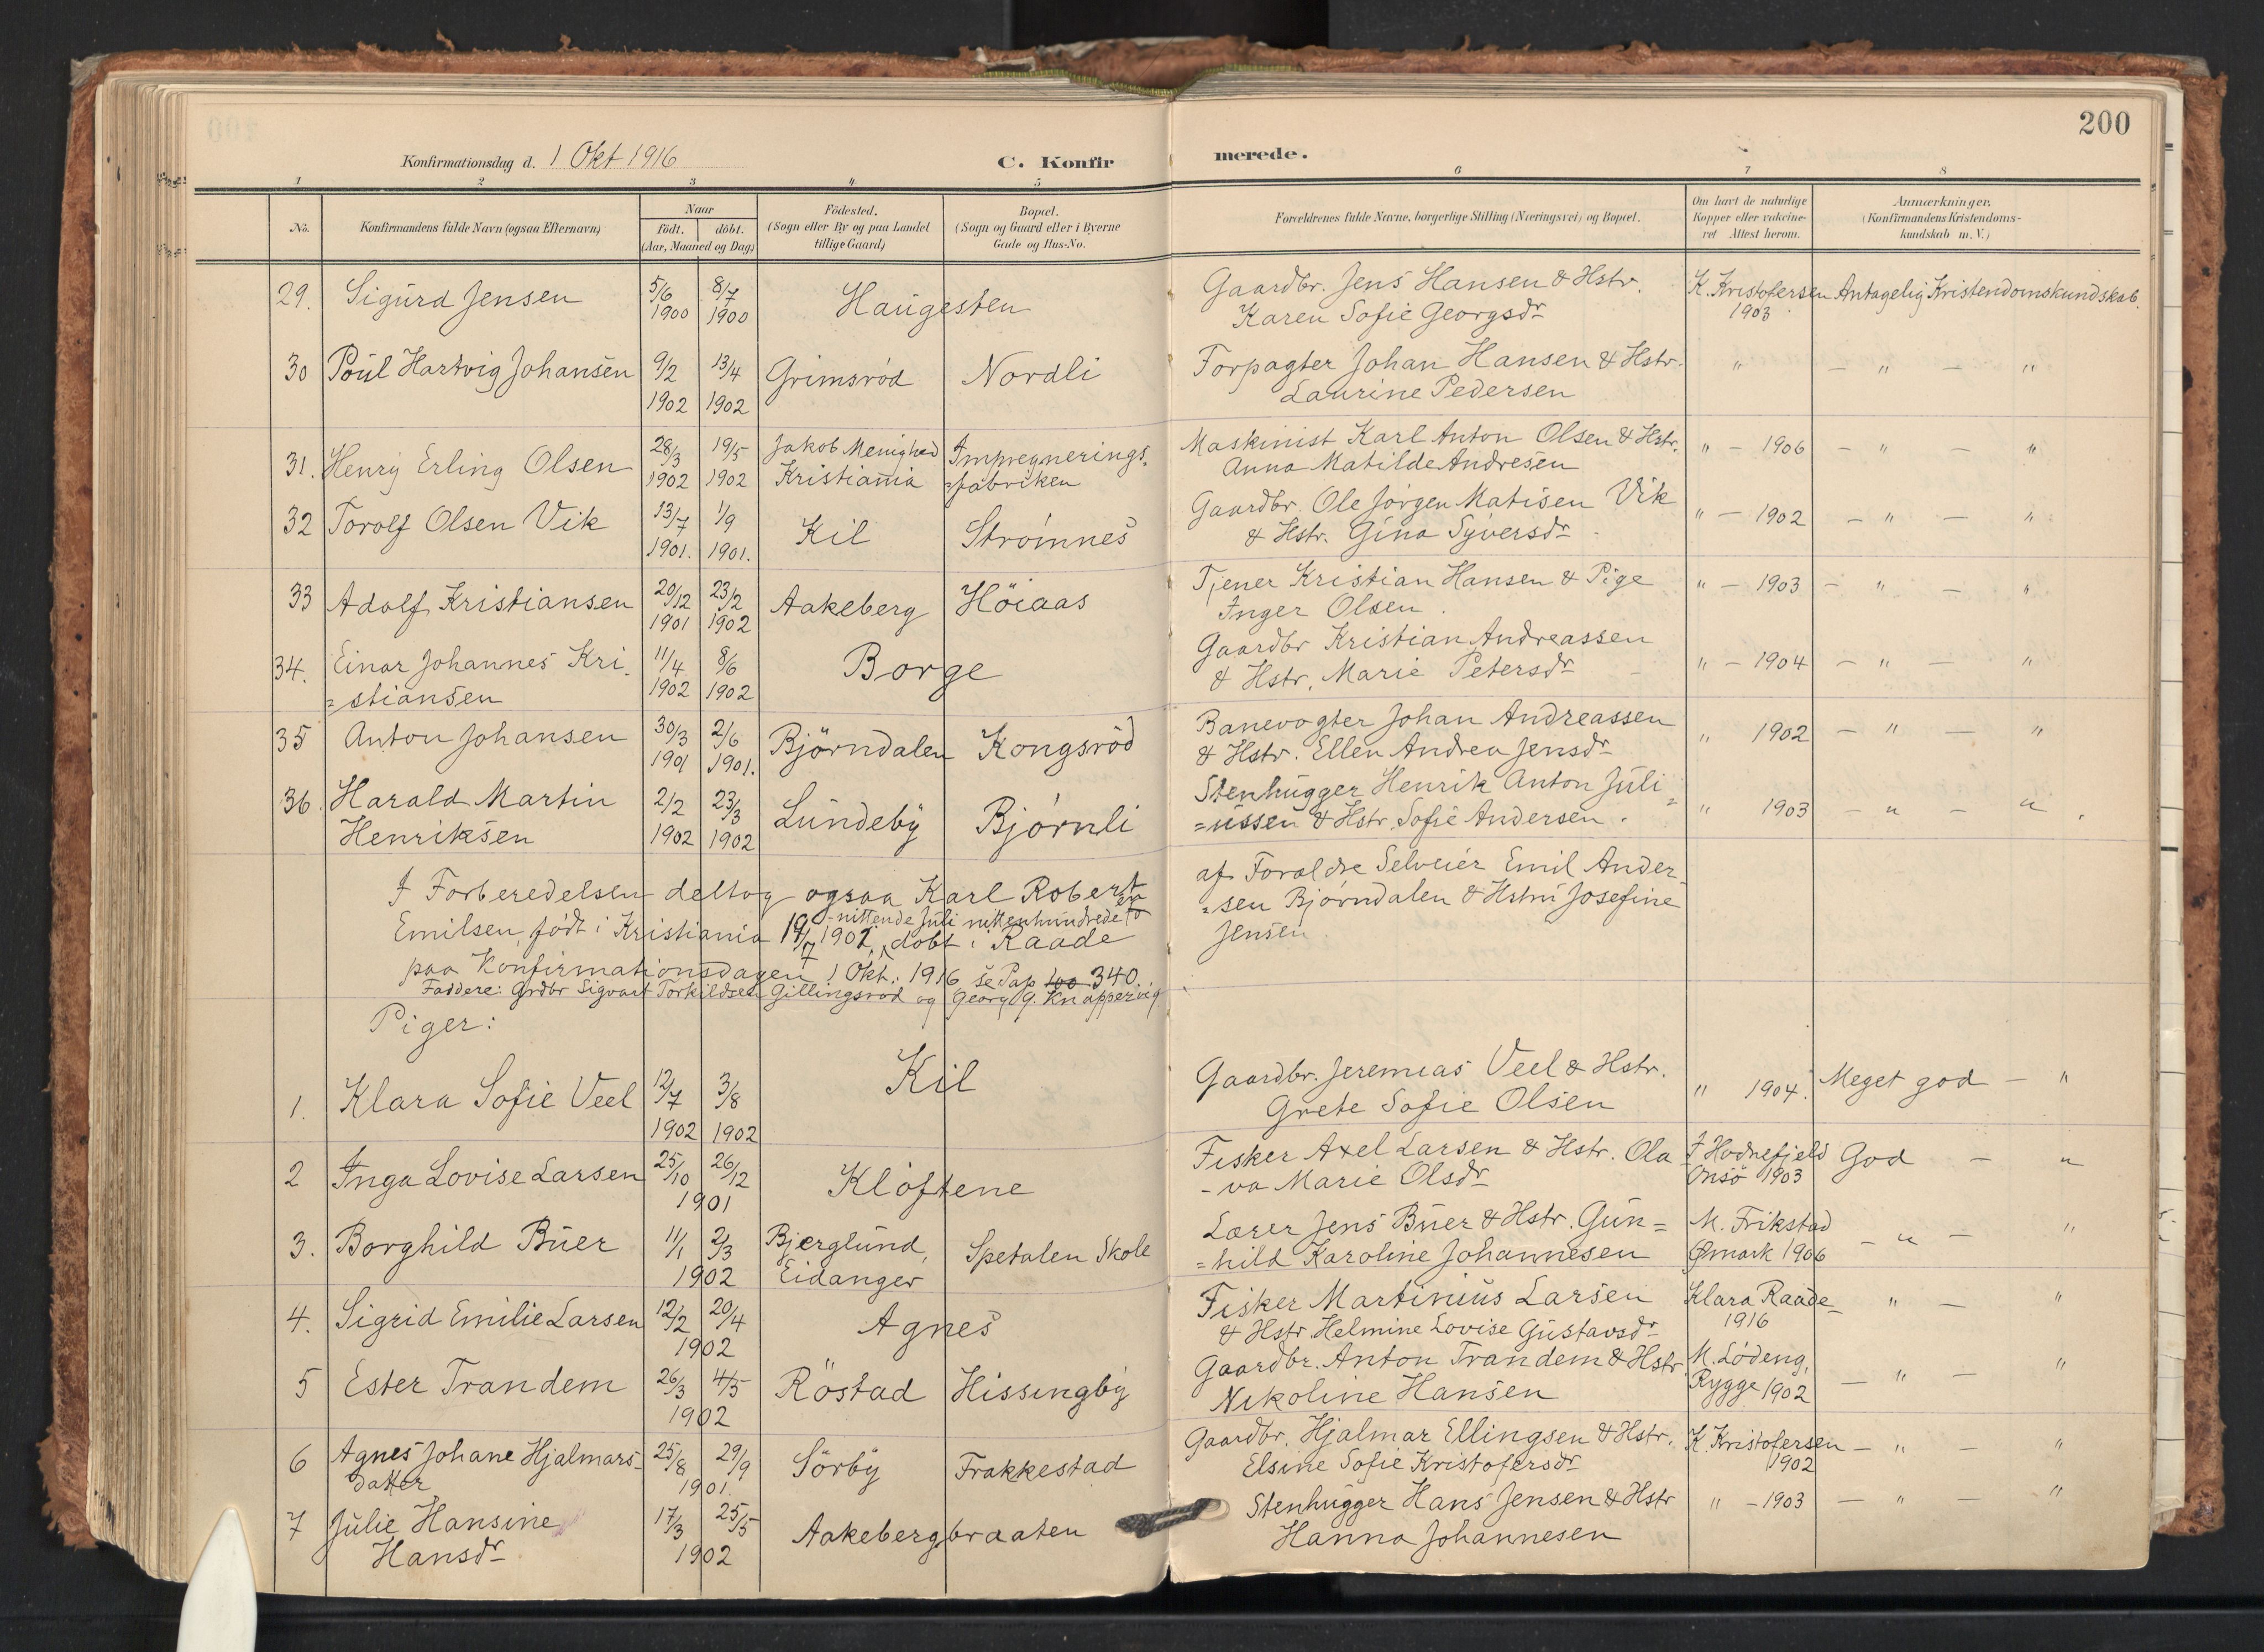 200
Konfirmationsdag d. 1 Okt 1916
C. Konfirmerede.
1 2 3 4 5 6 7 8
No. Konfirmandens fulde Navn (ogsaa Efternavn) Naar födt. döbt. (Aar, Maaned og Dag) Födested. (Sogn eller By og paa Landet tillige Gaard) Bopæl. (Sogn og Gaard eller i Byerne Gade og Hus-No. Forældrenes fulde Navne, borgerlige Stilling (Næringsvei) og Bopæl. Om havt de naturlige Kopper eller vaccineret Attest herom. Anmærkninger. (Konfirmandens Kristendomskundskab m. V.)
29. Sigurd Jensen 5/6 1900 8/7 1900 Haugesten Gaardbr. Jens Hansen & Hstr. K. Kristofersen Antagelig Kristendomskundskab.
Karen Sofie Georgsdr 1903
30 Poul Hartvig Johansen 9/2 1902 13/4 1902 Grimsröd Nordli Forpagter Johan Hansen & Hstr. " — " — "
Laurine Pedersen
31. Henry Erling Olsen 28/3 1902 19/5 1902 Jakob Menighed Impregnerings- Maskinist Karl Anton Olsen & Hstr. " — 1906 — " — "
Kristiania =fabriken Anna Matilde Andresen
32 Torolf Olsen Vik 13/7 1901. 1/9 1901. Kil Strömnes Gaardbr. Ole Jörgen Matisen Vik " — 1902 — " — "
& Hstr. Gina Syversdr
33 Adolf Kristiansen 20/12 1901 23/2 1902 Aakeberg Höiaas Tjener Kristian Hansen & Pige " — 1903 — " — "
Inger Olsen.
34. Einar Johannes Kri- 11/4 1902 8/6 1902 Borge Gaardbr Kristian Andreassen " — 1904 — " — "
=stiansen & Hstr. Marie Petersdr
35 Anton Johansen 30/3 1901 2/6 1901. Björndalen Kongsröd Banevogter Johan Andreassen " 1902 — " — "
& Hstr. Ellen Andrea Jensdr
36. Harald Martin 2/2 1902 23/3 1902 Lundeby Björnli Stenhugger Henrik Anton Juli= " 1903 — " — "
Henriksen =ussen & Hstr. Sofie Andersen.
I Forberedelsen deltog ogsaa Karl Robert af Foraldre Selveier Emil Ander-
nittende Juli nittenhundrede
Emilsen, födt i Kristiania 19/7 1902, döbt i Raade =sen Björndalen & Hstru Josefine
paa Konfirmationsdagen 1 Okt. 1916 se Pag 340. Jensen
Faddere: Grdbr Sigvart Torkildsen Gillingsröd og Georg G. Knappervig
Piger:
1. Klara Sofie Veel 12/7 1902 3/8 1902 Kil Gaardbr. Jeremias Veel & Hstr. " 1904. Meget god — "
Grete Sofie Olsen
2 Inga Lovise Larsen 25/10 26/12 1901 Klöftene Fisker Axel Larsen & Hstr. Ola I Hodnefjeld God — "
-va Marie Olsdr Onsö 1903
3. Borghild Buer 11/1 2/3 1902 Bjerglund, Spetalen Skole Lærer Jens Buer & Hstr. Gun= M. Frikstad — " — "
Eidanger =hild Karoline Johannesen Ømark 1906
4. Sigrid Emilie Larsen 12/2 20/4 1902 Agnes Fisker Martinius Larsen Klara Raade — " — "
& Hstr. Helmine Lovise Gustavsdr 1916
5 Ester Trandem 26/3 4/5 1902 Röstad Hissingby Gaardbr. Anton Trandem & Hstr. M. Lödeng, — " — "
Nikoline Hansen Rygge 1902
6 Agnes Johane Hjalmars- 25/8 29/9 1901. Sörby Frakkestad Gaardbr. Hjalmar Ellingsen & Hstr. K. Kristofersen — " — "
datter Elsine Sofie Kristofersdr 1902
7 Julie Hansine 17/3 25/5 1902 Aakebergbraaten Stenhugger Hans Jensen & Hstr " — 1903 — " — "
Hansdr Hanna Johannesen